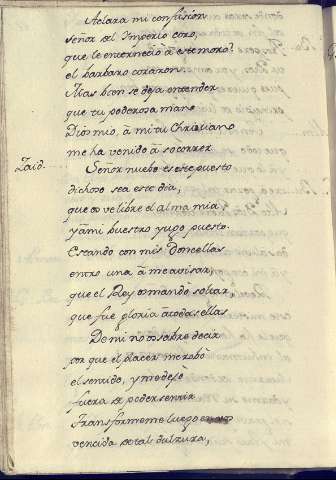 Aclara mi confusion
Señor del Imperio coro,
que te enterneciò à este moro?
el barbaro corazon.
Mas bien se deja entender
que tu poderosa mano
Dios mio, à mi tu Christiano
me ha venido à socorrer
Zaid. Señor nuebo es este puesto
dichoso sea este dia,
que os ve libre el alma mia
y à mi buestro yugo puesto.
Estando con mis Doncellas
entro una à me avisar,
que el Rey os mandò soltar,
que fue gloria à todas ellas
De mi no os sabre decir
por que el placer me robò
el sentido, y me dejò
fuera de poder sentir
Transformeme luego en
vencida de tal dulzura,